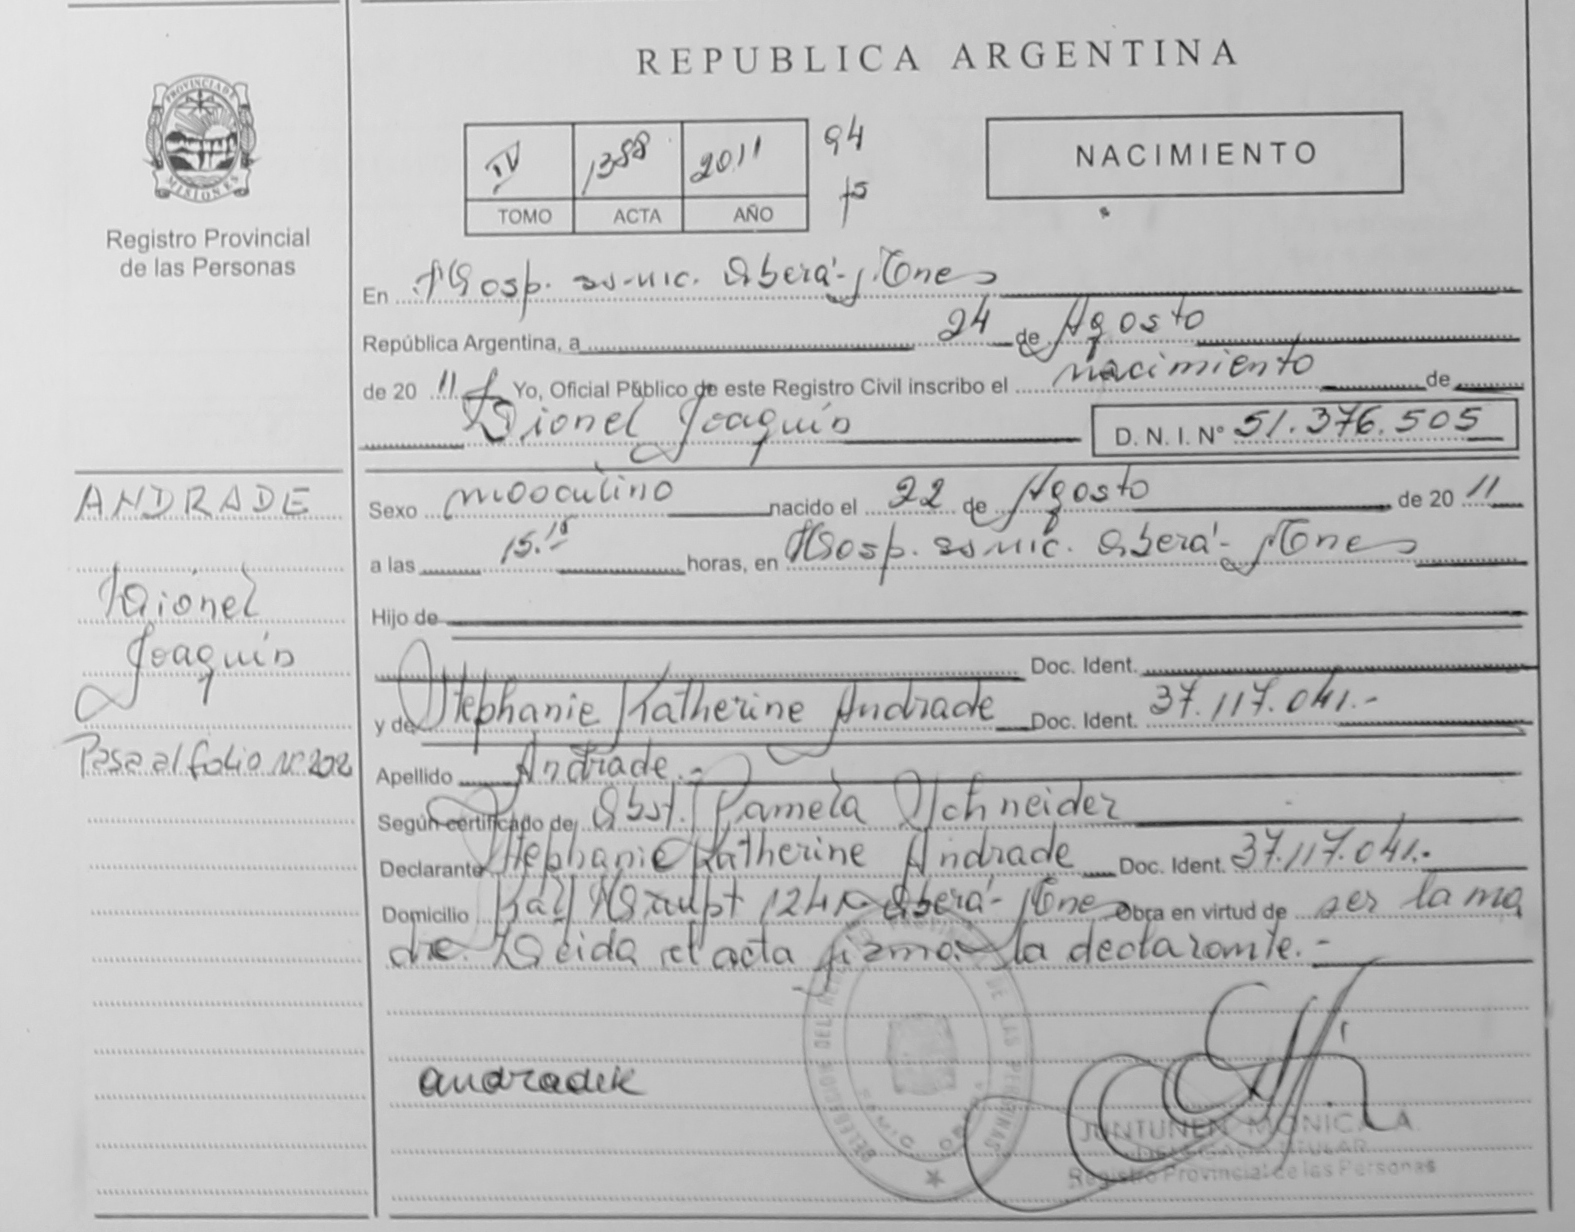 REPUBLICA ARGENTINA
PROVINCIA DE
MISIONES
Registro Provincial
de las Personas
IV 1388 2011 94
TOMO ACTA AÑO 75
NACIMIENTO
En Hosp. Samic. Oberá - Mnes
República Argentina, a 24 de Agosto
de 20 11 Yo, Oficial Público de este Registro Civil inscribo el nacimiento de
Lionel Joaquín D. N. I. N° 51.376.505
ANDRADE
Lionel
Joaquín
Pasa al folio N° 202
Sexo masculino nacido el 22 de Agosto de 20 11
a las 15.15 horas, en Hosp. Samic. Oberá - Mnes
Hijo de
Doc. Ident.
y de Stephanie Katherine Andrade Doc. Ident. 37.117.041.-
Apellido Andrade.-
Según certificado de Obst. Pamela Schneider
Declarante Stephanie Katherine Andrade Doc. Ident. 37.117.041.-
Domicilio Oberá - Mnes Obra en virtud de ser la ma
dre. Leida el acta firma la declarante.-
andradek
JUNTUNEN MONICA A.
DELEGADA TITULAR
Registro Provincial de las Personas